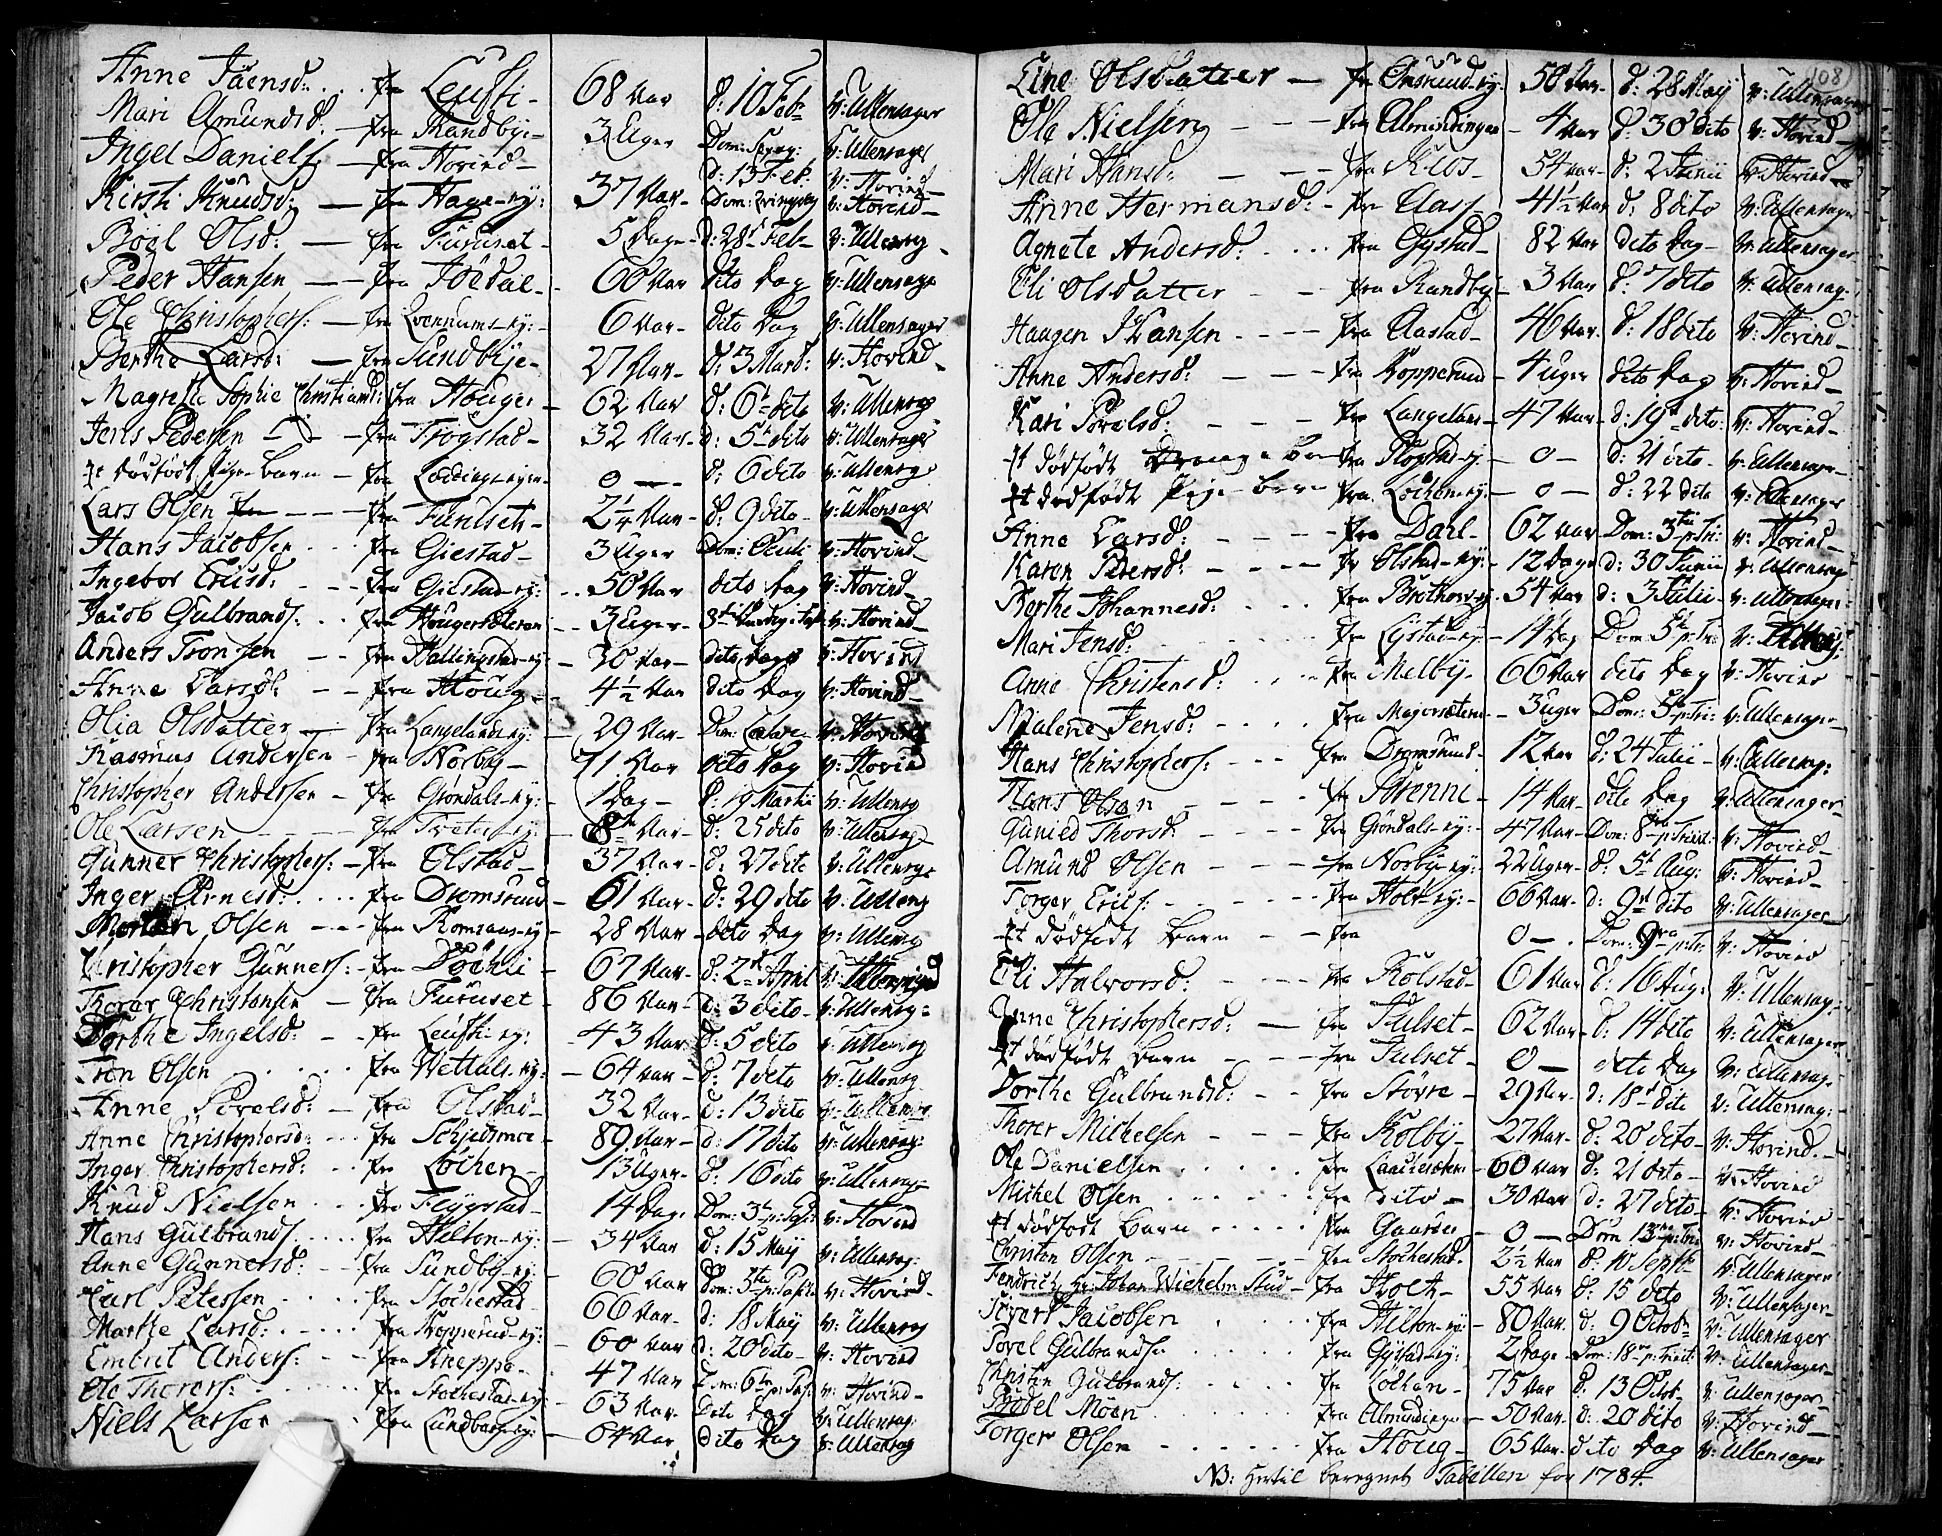 Anne Jäensd: fra Leufti 68 Aar d: 10 Feb: v: Ullensager
Mari Amundsd. fra Randbye 3 Uger Dom: Sexag: v: Ullensager
Ingel Daniels fra Hovind d: 13 Feb. v: Hovind
Kirsti Knudsd: fra Hage-ey: 37 Aar v: Hovind
Böel Olsd: fra Furuset 5 Dage d: 28 Feb v: Ullensag
Peder Hansen fra Jödal 60 Aar dito Dag v: Ullensag
Ole Christophers: fra 6 Aar dito Dag v: Ullensager
Berthe Larsd: fra Sundbye 27 Aar d: 3 Marti: v: Hovind
Magrethe Sophie Christiansd: fra Houger 62 Aar d: 6 dito v: Ullensag
Jens Pedersen fra Trögstad 32 Aar d: 5 dito v: Ullensager
Et dödfödt Pige barn fra 0 d: 6 dito v: Ullensag
Lars Olsen fra Furuset 2¼ Aar d: 9 dito v: Ullensager
Hans Jacobsen fra Giestad 3 Uger Dom: Oculi v: Hovind
Ingebor Ericsd: fra Giestad-ey: 50 Aar dito Dag v: Hovind
Jacob Gulbrands: fra 3 Uger v: Hovind
Anders Tronsen fra Hallingstad-ey: 30 Aar dito Dag v: Hovind
Anne Larsd: fra Houg 4½ Aar dito Dag v: Hovind
Olia Olsdatter fra Langeland-ey: 29 Aar Dom: Lætare v: Hovind
Rasmus Andersen fra Norbye 71 Aar dito Dag v: Hovind
Christopher Andersen fra Gröndals-ey: 1 Dag d: 19 Martii v: Ullensag
Ole Larsen fra Tveter-ey: 8 Aar d: 25 dito v: Ullensag
Gunner Christophers: fra Olstad 37 Aar d: 27 dito v: Ullensag
Inger Arnesd: fra Dromsrud 61 Aar d: 29 dito v: Ullensag
Morten Olsen fra Romsaas-ey 28 Aar dito Dag v: Ullensag
Christopher Gunners: fra Döhli 67 Aar d: 2 April v:
Thorer Christensen fra Furuset 86 Aar d: 3 dito v: Ullensag:
Dorthe Ingelsd: fra Leufti-ey: 43 Aar d: 5 dito v: Ullensag
Tron Olsen fra Wettals-ey: 64 Aar d: 7 dito v: Ullensag
Anne Povelsd: fra Olstad 32 Aar d: 13 dito v: Ullensag
Anne Christophersd: fra Schjedsmoe 89 Aar d: 17 dito v: Ullensag:
Inger Christophersd: fra Löchen 13 Uger d: 16 dito v: Ullensag
Knud Nielsen fra Flygstad 14 Dage Dom: 3 p: Pasc: v: Hovind
Hans Gulbrands. fra Helton-ey: 34 Aar d: 15 Maij v: Ullensag:
Anne Gunnersd: fra Sundby-ey: 60 Aar Dom: 5ta p: Pasc: v: Hovind
Carl Petersen fra Stochestad 66 Aar d: 18 Maij v: Ullensag
Marthe Larsd: fra Kopperud-ey: 60 Aar d: 20 dito v: Hovind
Embret Anders: fra Kneppe 47 Aar Dom: 6te p: Pasc: v: Hovind
Ole Thorers: fra Stochestad-ey: 63 Aar dito Dag v: Ullensag:
Niels Larsen fra Sundby-ey: 64 Aar dito Dag v: Ullensag
108
Eine Olsdatter fra Onsrud-ey: 50 Aar d: 28 Maij v: Ullensager
Ole Nielsen fra Almindingen 4 Aar d: 30 dito v: Hovind
Mari Hansd: fra Klos 54 Aar d: 2 Junii v: Hovind
Anne Hermansd: fra Aas 41½ Aar d: 8 dito v: Ullensager
Agnete Andersd: fra Gystad 82 Aar dito Dag v: Ullensager
Eli Olsdatter fra Randby 3 Aar d: 7 dito v: Ullensag:
Haagen Hansen fra Aastad 46 Aar d: 18 dito v: Hovind
Anne Andersd: fra Kopperud 4 Uger dito Dag v: Hovind
Kari Povelsd: fra Langeland 47 Aar d: 19 dito v: Hovind
Et dödfödt Drenge barn fra 0 d: 21 dito v: Ullensager
Et dödfödt Pige barn fra Löchen-ey: 0 d: 22 dito v: Ullensager
Anne Larsd: fra Dahl 62 Aar Dom: 3tie p: Tri: v: Hovind
Karen Pedersd: fra Olstad-ey: 12 Dage d: 30 Junii v: Ullensag
Berthe Johannesd: fra 54 Aar d: 3 Julii v: Ullensager:
Mari Jensd: fra Lystad-ey 14 Dag Dom: 5te p: Tri: v: Ullensag:
Anne Christensd: fra Melby 66 Aar dito Dag v: Hovind
Malene Jensd: fra Majorsæteren 3 Uger Dom: 5 p: Tri: v: Ullensager
Hans Christophers: fra Dromsrud 12 Aar d: 24 Julii v: Ullensag:
Hans Olsen fra Brenni 14 Aar dito Dag v: Ullensager
Gunild Thorsd: fra Gröndals-ey: 47 Aar Dom: 8 p: Trinit: v: Hovind
Amund Olsen fra Norby-ey: 22 Uger d: 5 Aug: v: Hovind
Torger Erics: fra Holt-ey: 66 Aar d: 9 dito v: Ullensager
Et dödfödt barn fra 0 Dom: 9na p: Tri: v: Hovind
Eli Halvorsd: fra Kolstad 61 Aar d: 16 Aug: v: Ullensag:
Anne Christophersd: fra Julset 62 Aar d: 14 dito v: Ullensager
Et dödfödt barn fra Julset 0 dito Dag v: Ullensag.
Dorthe Gulbrandsd: fra Stövre 29 Aar d: 18 dito v: Ullensag:
Thorer Michelsen fra Kolby 27 Aar d: 20 dito v: Hovind
Ole Danielsen fra Laachesæteren 60 Aar d: 21 dito v: Hovind
Michel Olsen fra dito 30 Aar d: 27 dito v: Hovind
Et dödfödt barn fra Gaarder 0 Dom 13 p: Tri: v: Hovind
Christen Olsen fra Stochestad 2½ Aar d: 10 Septb v: Ullensager
Fendrich Hr: Johan Wichelm Stud fra Holt 55 Aar d: 15 dito v: Ullensager
Sivert Jacobsen fra Hilton-ey 80 Aar d: 9 Octobr v: Ullensager
Povel Gulbrandse fra Gystad-ey: 2 Dage Dom: 18 p: Trinit: v: Ullensager
Christen Gulbrands: fra Löchen 75 Aar d: 13 Octob v: Ullensager
Bodel Moen fra Almindingen 50 Aar d: 20 dito v: Hovind
Torger Olsen fra Houg 65 Aar dito Dag v: Ullensager
NB: Hertil beregnet Tabellen for 1784.